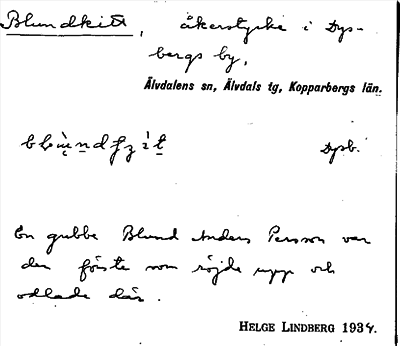 Blundkitt, åkerstycke i Dys-
bergs by,
Älvdalens sn, Älvdals tg, Kopparbergs län.
Dysb.
En gubbe Blund Anders Persson var
den förste som röjde upp och
odlade där.
HELGE LINDBERG 1934.